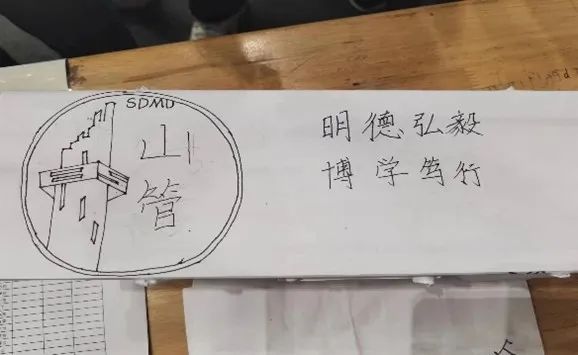 SDMU
山
管
明德弘毅
博学笃行